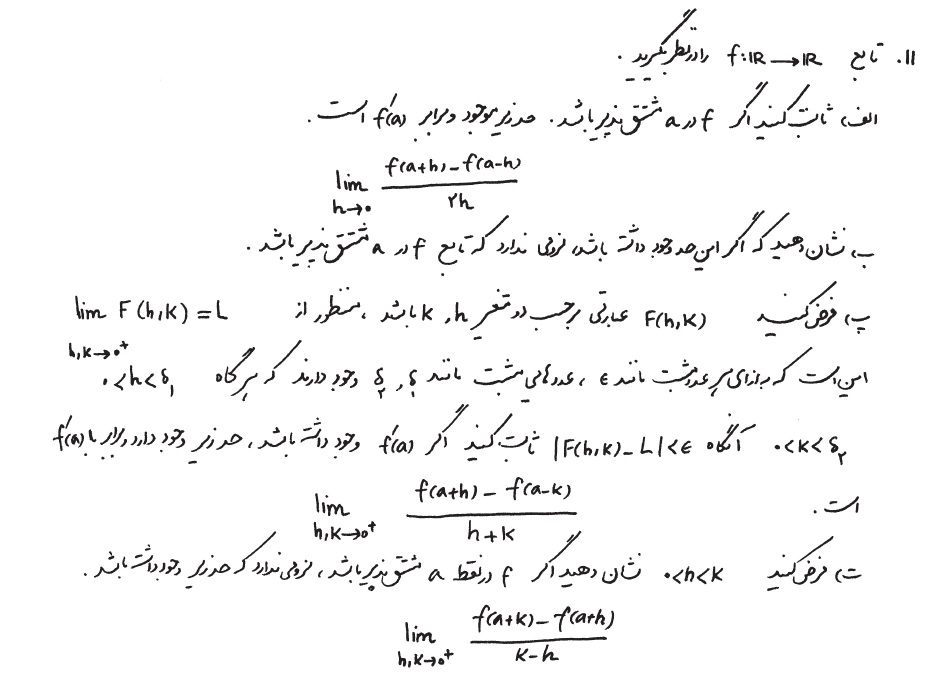 ۱۱. تابع f:ℝ→ℝ را در نظر بگیرید.
الف، ثابت کنید اگر f در a مشتق پذیر باشد. حد زیر موجود و برابر f'(a) است.
lim h→۰ (f(a+h) - f(a-h)) / ۲h
ب، نشان دهید که اگر این حد وجود داشته باشد، لزومی ندارد که تابع f در a مشتق پذیر باشد.
پ، فرض کنید F(h,k) عبارتی برحسب دو متغیر h و k باشد، منظور از lim h,k→۰⁺ F(h,k) = L
این است که به ازای هر عدد مثبت مانند ε، عددهای مثبت مانند δ₁ و δ₂ وجود دارند که هرگاه ۰<h<δ₁
۰<k<δ₂ آنگاه |F(h,k) - L|<ε ثابت کنید اگر f'(a) وجود داشته باشد، حد زیر وجود دارد و برابر با f'(a)
است.
lim h,k→۰⁺ (f(a+h) - f(a-k)) / (h+k)
ت، فرض کنید ۰<h<k نشان دهید اگر f در نقطه a مشتق پذیر باشد، لزومی ندارد که حد زیر وجود داشته باشد.
lim h,k→۰⁺ (f(a+k) - f(a+h)) / (k-h)